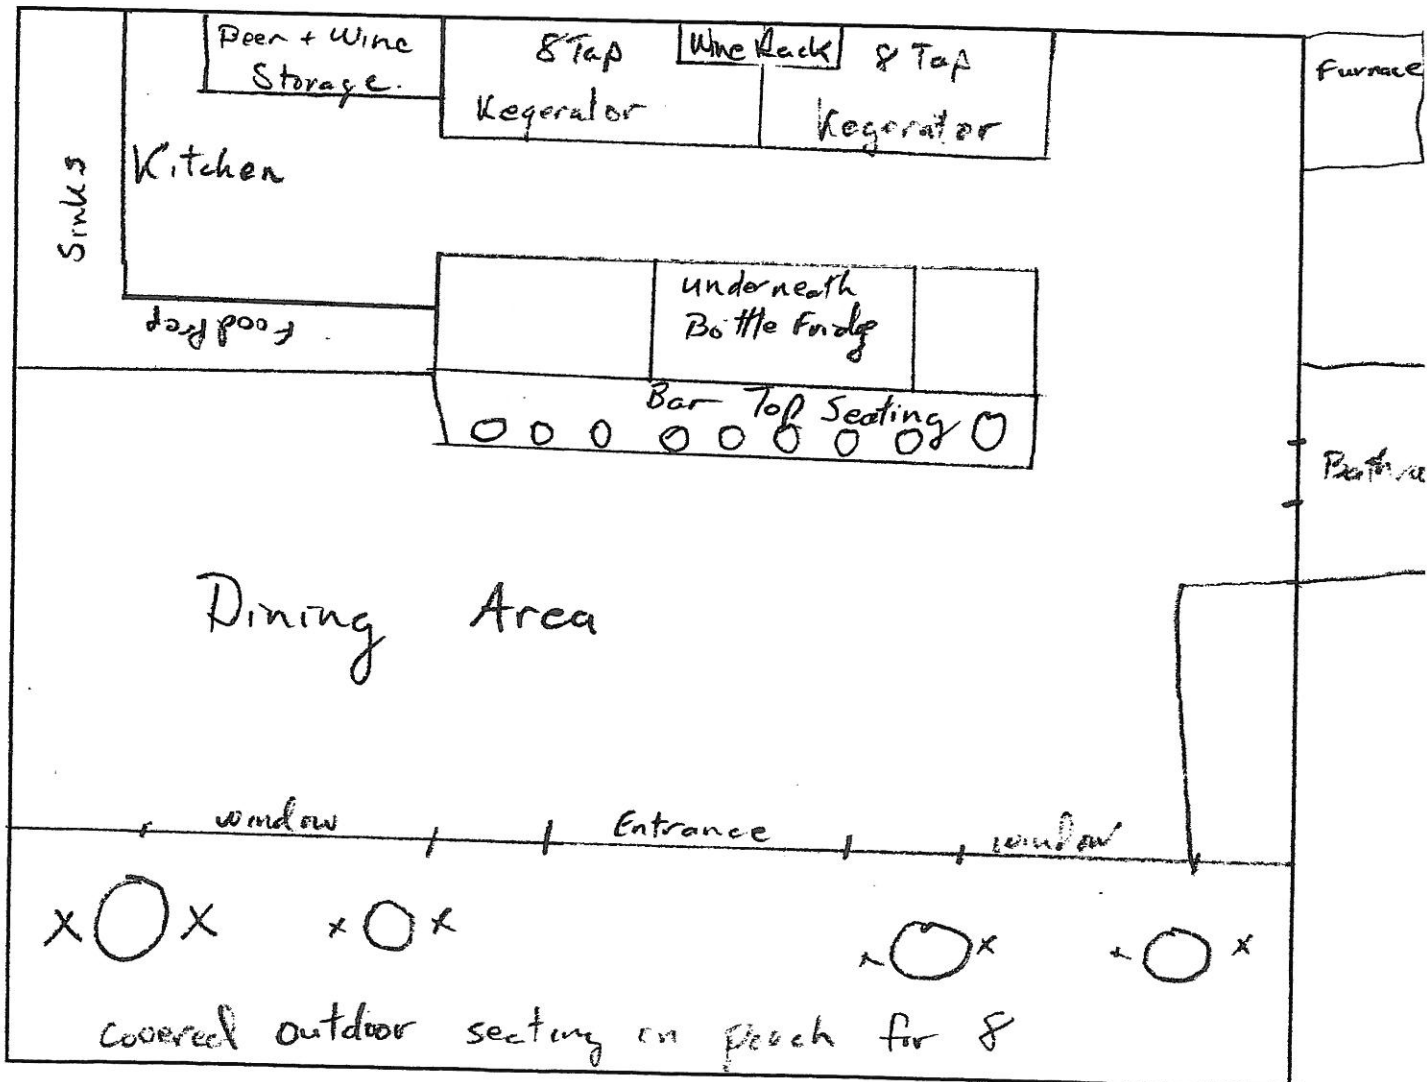 Beer + Wine
Storage.
8 Tap
Kegerator
Wine Rack
8 Tap
Kegerator
Furnace
Sinks
Kitchen
Food Prep
underneath
Bottle Fridge
Bar Top Seating
Dining Area
window
Entrance
window
covered outdoor seating on porch for 8